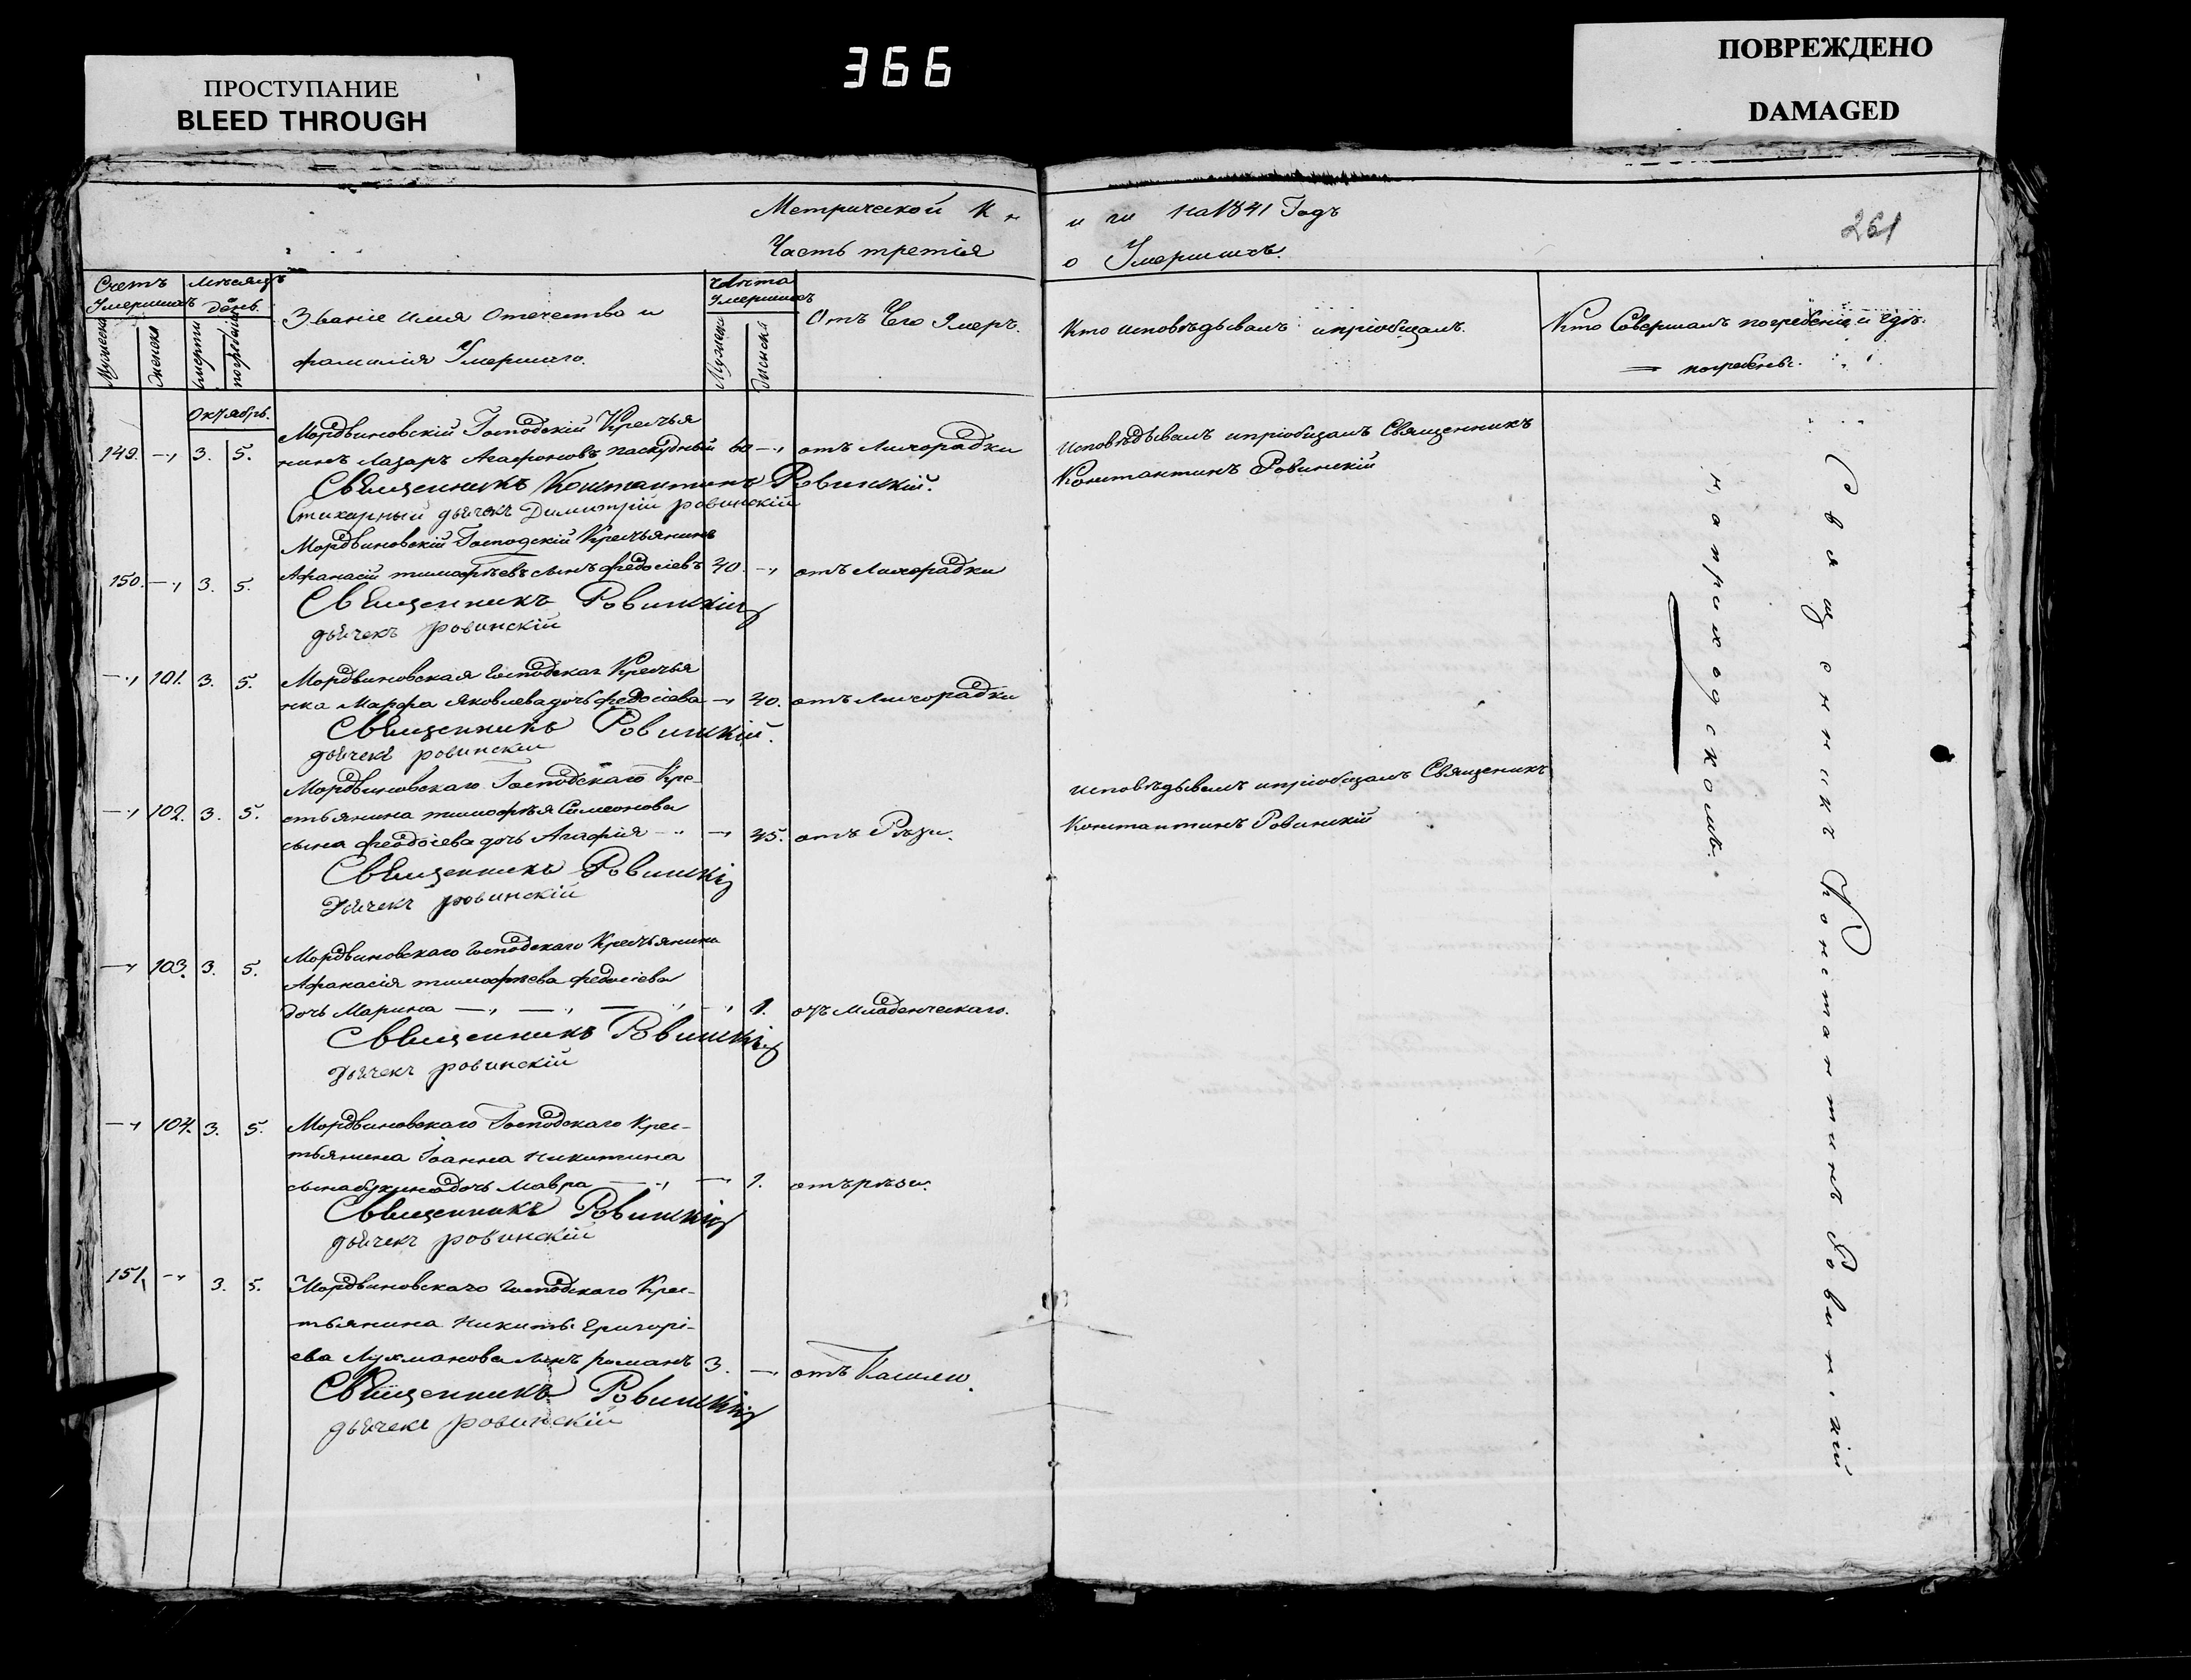 ПРОСТУПАНИЕ
BLEED THROUGH
366
ПОВРЕЖДЕНО
DAMAGED
Метрической Кн
иги на 1841 Годъ
261
Часть третія
о Умершихъ.
Счетъ Умершихъ
Мужеска
Женска
Мѣсяцъ День.
смерти
погребенія
Званіе имя Отечество и
фамилія Умершаго.
лѣта Умершихъ
Мужеска
Женска
Отъ Чего Умеръ.
Кто исповѣдывалъ и пріобщалъ.
Кто Совершалъ погребеніе и гдѣ
погребены.
Октябрь.
Мордвиновскій Господскій Крестья
149. 3. 5. нинъ Лазарь Агафоновъ 60 отъ Лихорадки
Исповѣдывалъ и пріобщалъ Священникъ
Константинъ Ровинскій
Священникъ Константинъ Ровинскій.
Стихарный дьячекъ Димитрій ровинскій
Мордвиновскій Господскій Крестьянинъ
150. 3. 5. Афанасій тимофѣевъ сынъ федосіевъ 40. отъ Лихорадки
Священникъ Ровинскій
дьячекъ ровинскій
Мордвиновская господская Крестья
101. 3. 5. нка Марфа Яковлева дочь федосіева 40. отъ Лихорадки
Священникъ Ровинскій.
дьячекъ ровинскій
Мордвиновскаго Господскаго Кре-
102. 3. 5. стьянина тимофѣя Симеонова
сына феодосіева дочь Агафія 45. отъ Рѣзи.
исповѣдывалъ и пріобщалъ Священикъ
Константинъ Ровинскій
Священникъ Ровинскій
Дьячекъ ровинскій
Мордвиновскаго господскаго Крестьянина
103. 3. 5. Афанасія тимофѣева федосіева
дочь Марина 1. отъ Младенческаго.
Священникъ Ровинскій
Дьячекъ ровинскій
104. 3. 5. Мордвиновскаго Господскаго Крес-
тьянина Іоанна Никитина
сына дочь Мавра 1. отъ рѣзи.
Священникъ Ровинскій
дьячекъ ровинскій
151. 3. 5. Мордвиновскаго господскаго Крес-
тьянина Никиты Григорі-
ева Лукманова сынъ романъ 3. отъ Кашлю.
Священникъ Ровинскій
дьячекъ ровинскій
на приходскомъ.
Священникъ Константинъ Ровинскій